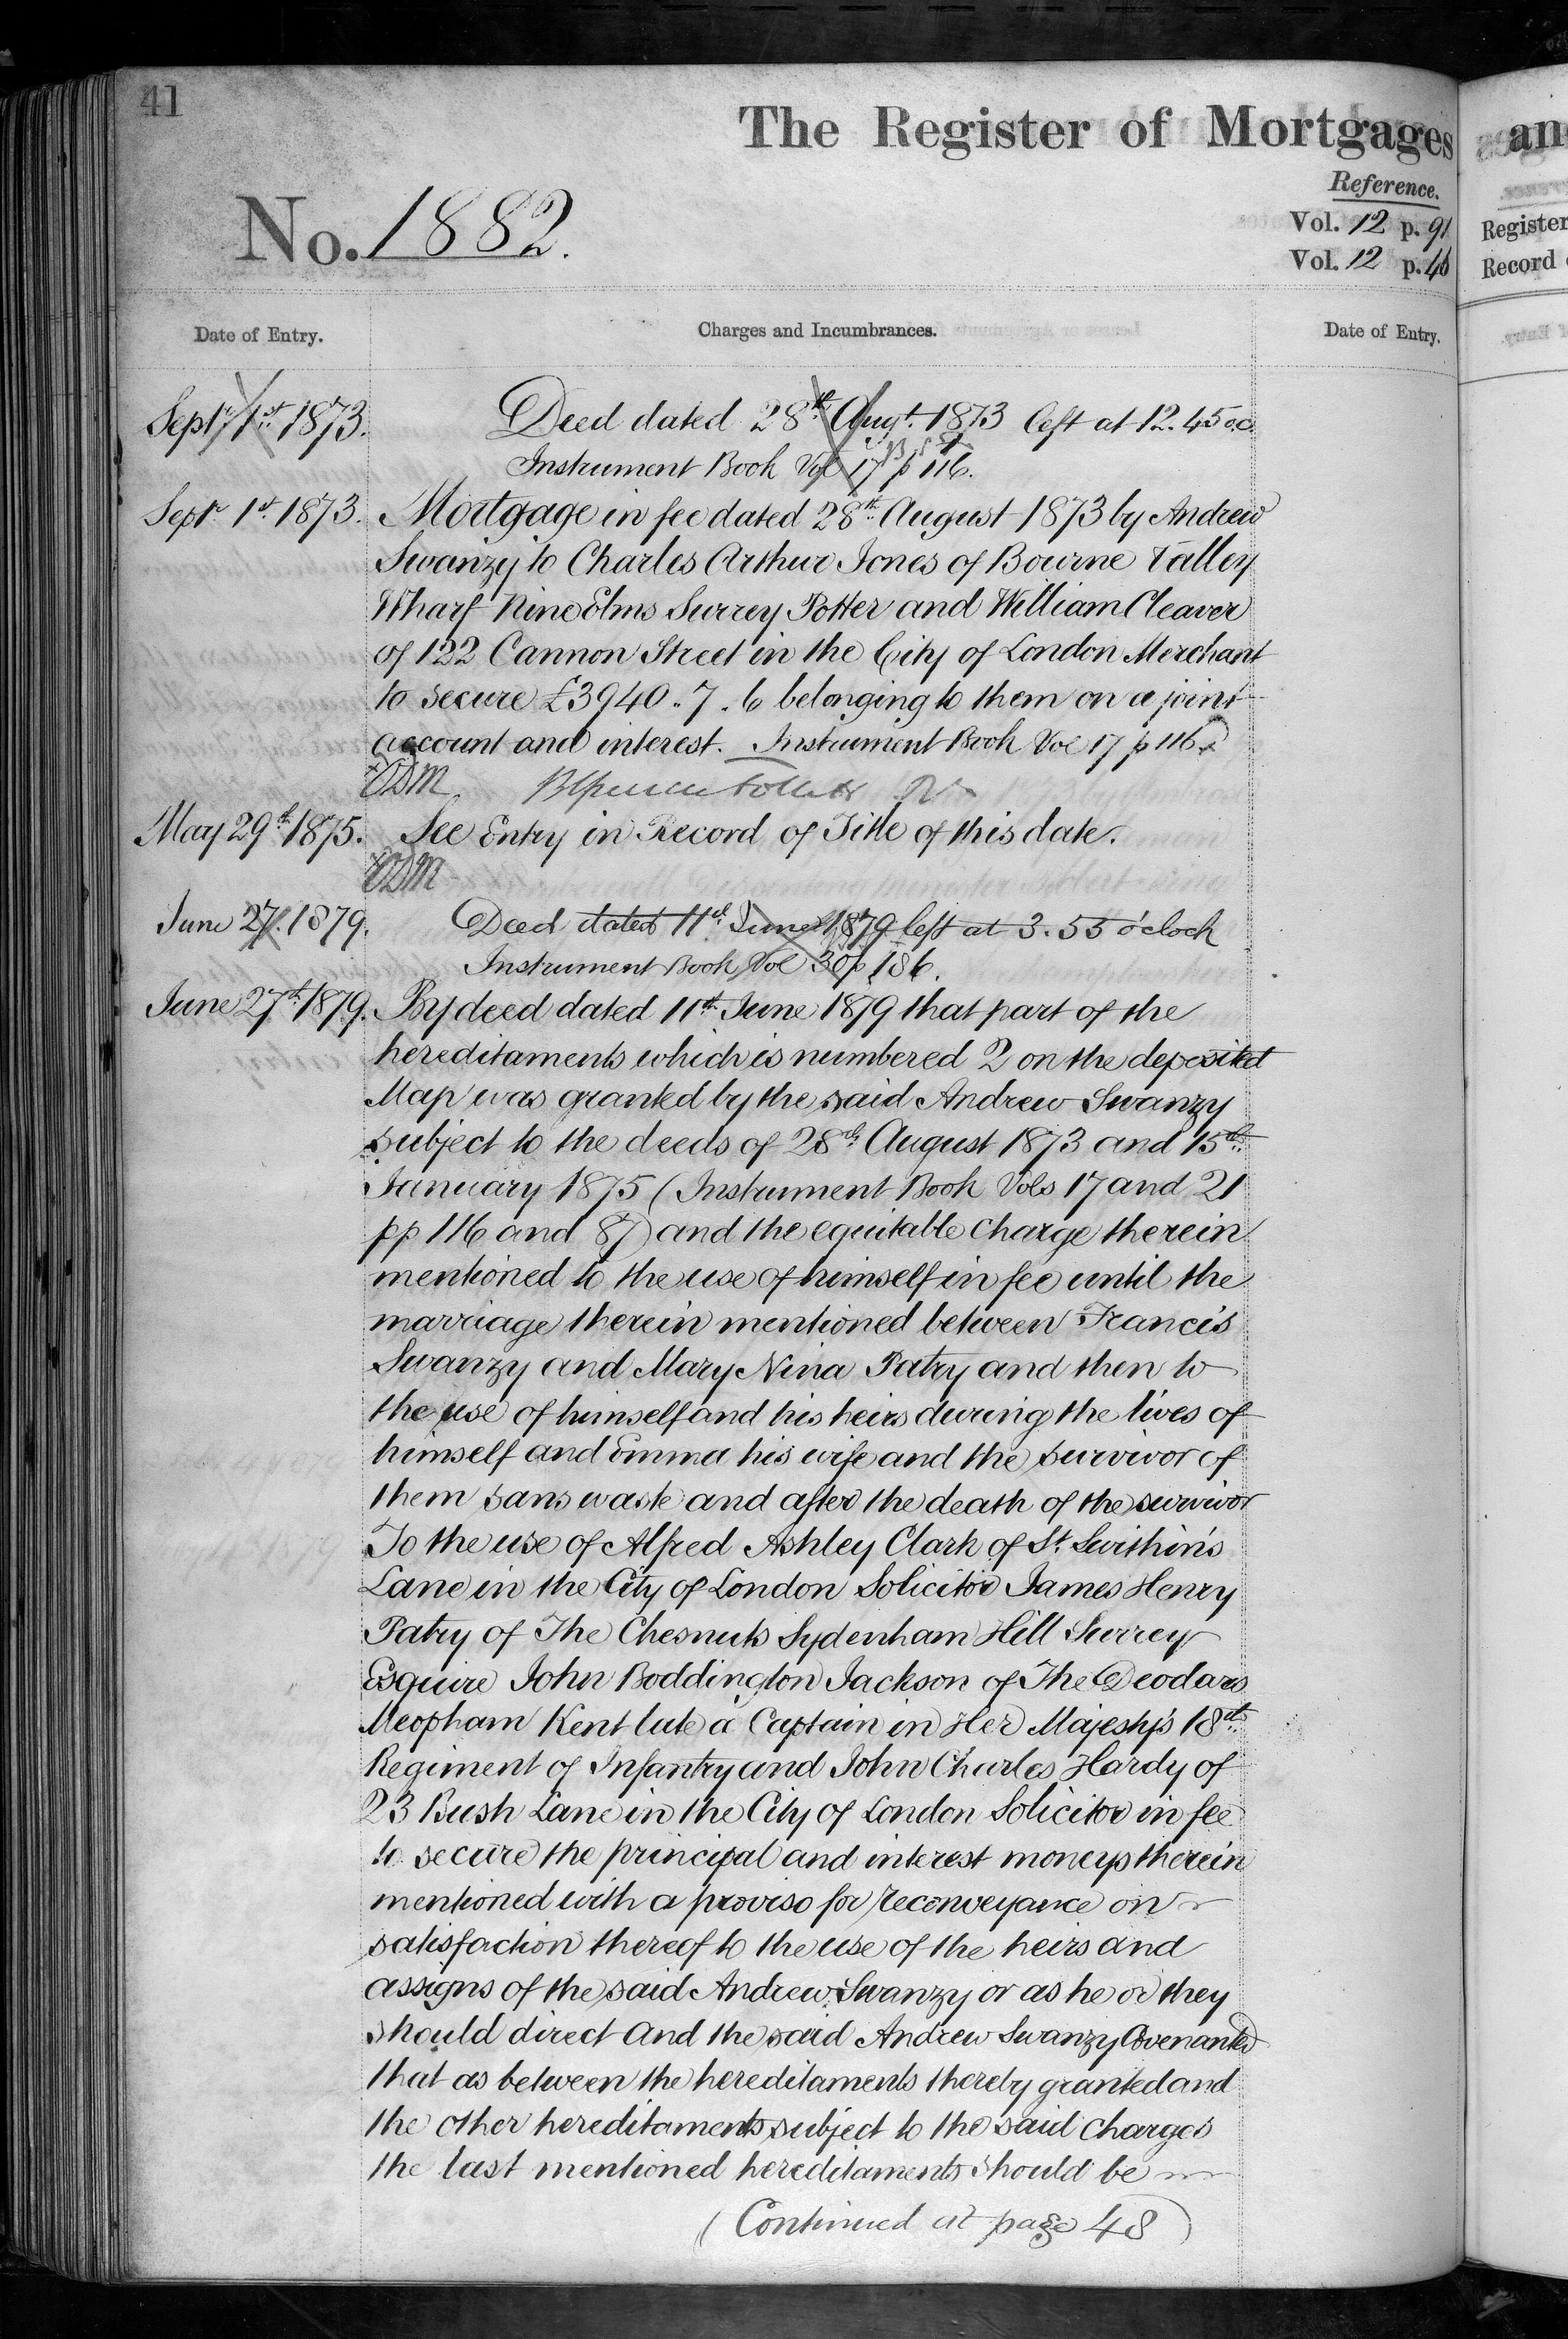 41
The Register of Mortgages
Reference.
No. 1882.
Vol. 12 p. 91
Vol. 12 p. 46
an
Register
Record
Date of Entry.
Charges and Incumbrances.
Date of Entry.
Septr 1st 1873. Deed dated 28th Augt. 1873 left at 12.45 o.c.
Instrument Book Vol 17 p 116.
Septr 1st 1873. Mortgage in fee dated 28th August 1873 by Andrew
Swanzy to Charles Arthur Jones of Bourne Valley
Wharf Nine Elms Surrey Potter and William Cleaver
of 122 Cannon Street in the City of London Merchant
to secure £3940.7.6 belonging to them on a joint
account and interest. Instrument Book Vol 17 p 116
May 29th 1875. See Entry in Record of Title of this date.
June 27. 1879. Deed dated 11th June 1879 left at 3.53 o'clock
Instrument Book Vol 30 p 186.
June 27th 1879. By deed dated 11th June 1879 that part of the
hereditaments which is numbered 2 on the deposited
Map was granted by the said Andrew Swanzy
subject to the deeds of 28th August 1873 and 15th
January 1875 (Instrument Book Vols 17 and 21
pp 116 and 87) and the equitable charge therein
mentioned to the use of himself in fee until the
marriage therein mentioned between Francis
Swanzy and Mary Nina Patry and then to
the use of himself and his heirs during the lives of
himself and Emma his wife and the survivor of
them sans waste and after the death of the survivor
To the use of Alfred Ashley Clark of St. Swithin's
Lane in the City of London Solicitor James Henry
Patry of The Chesnuts Sydenham Hill Surrey
Esquire John Boddington Jackson of The Deodars
Meopham Kent late a Captain in Her Majesty's 18th
Regiment of Infantry and John Charles Hardy of
23 Bush Lane in the City of London Solicitor in fee
to secure the principal and interest moneys therein
mentioned with a proviso for reconveyance on
satisfaction thereof to the use of the heirs and
assigns of the said Andrew Swanzy or as he or they
should direct And the said Andrew Swanzy Covenanted
that as between the hereditaments thereby granted and
the other hereditaments subject to the said charges
the last mentioned hereditaments should be
(Continued at page 48)